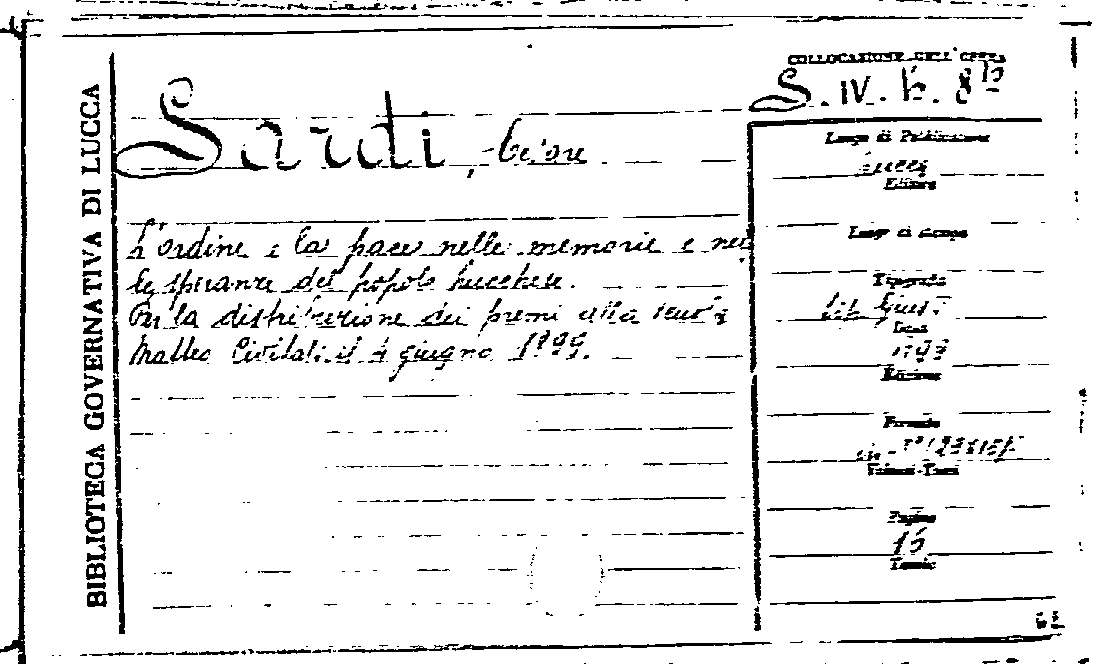 BIBLIOTECA GOVERNATIVA DI LUCCA
COLLOCAZIONE DELL'OPERA
S. IV. b. 8
Sardi, Cesare
L'ordine e la pace nelle memorie e nel
le speranze del popolo lucchese.
Per la distribuzione dei premi alla scuola
Matteo Civitali il 4 giugno 1899.
Luogo di Pubblicazione
Lucca
Editore
Luogo di stampa
Tipografia
tip. Giusti
Data
1899
Edizione
Formato
in-
Volumi-Tomi
Pagine
15
Tavole